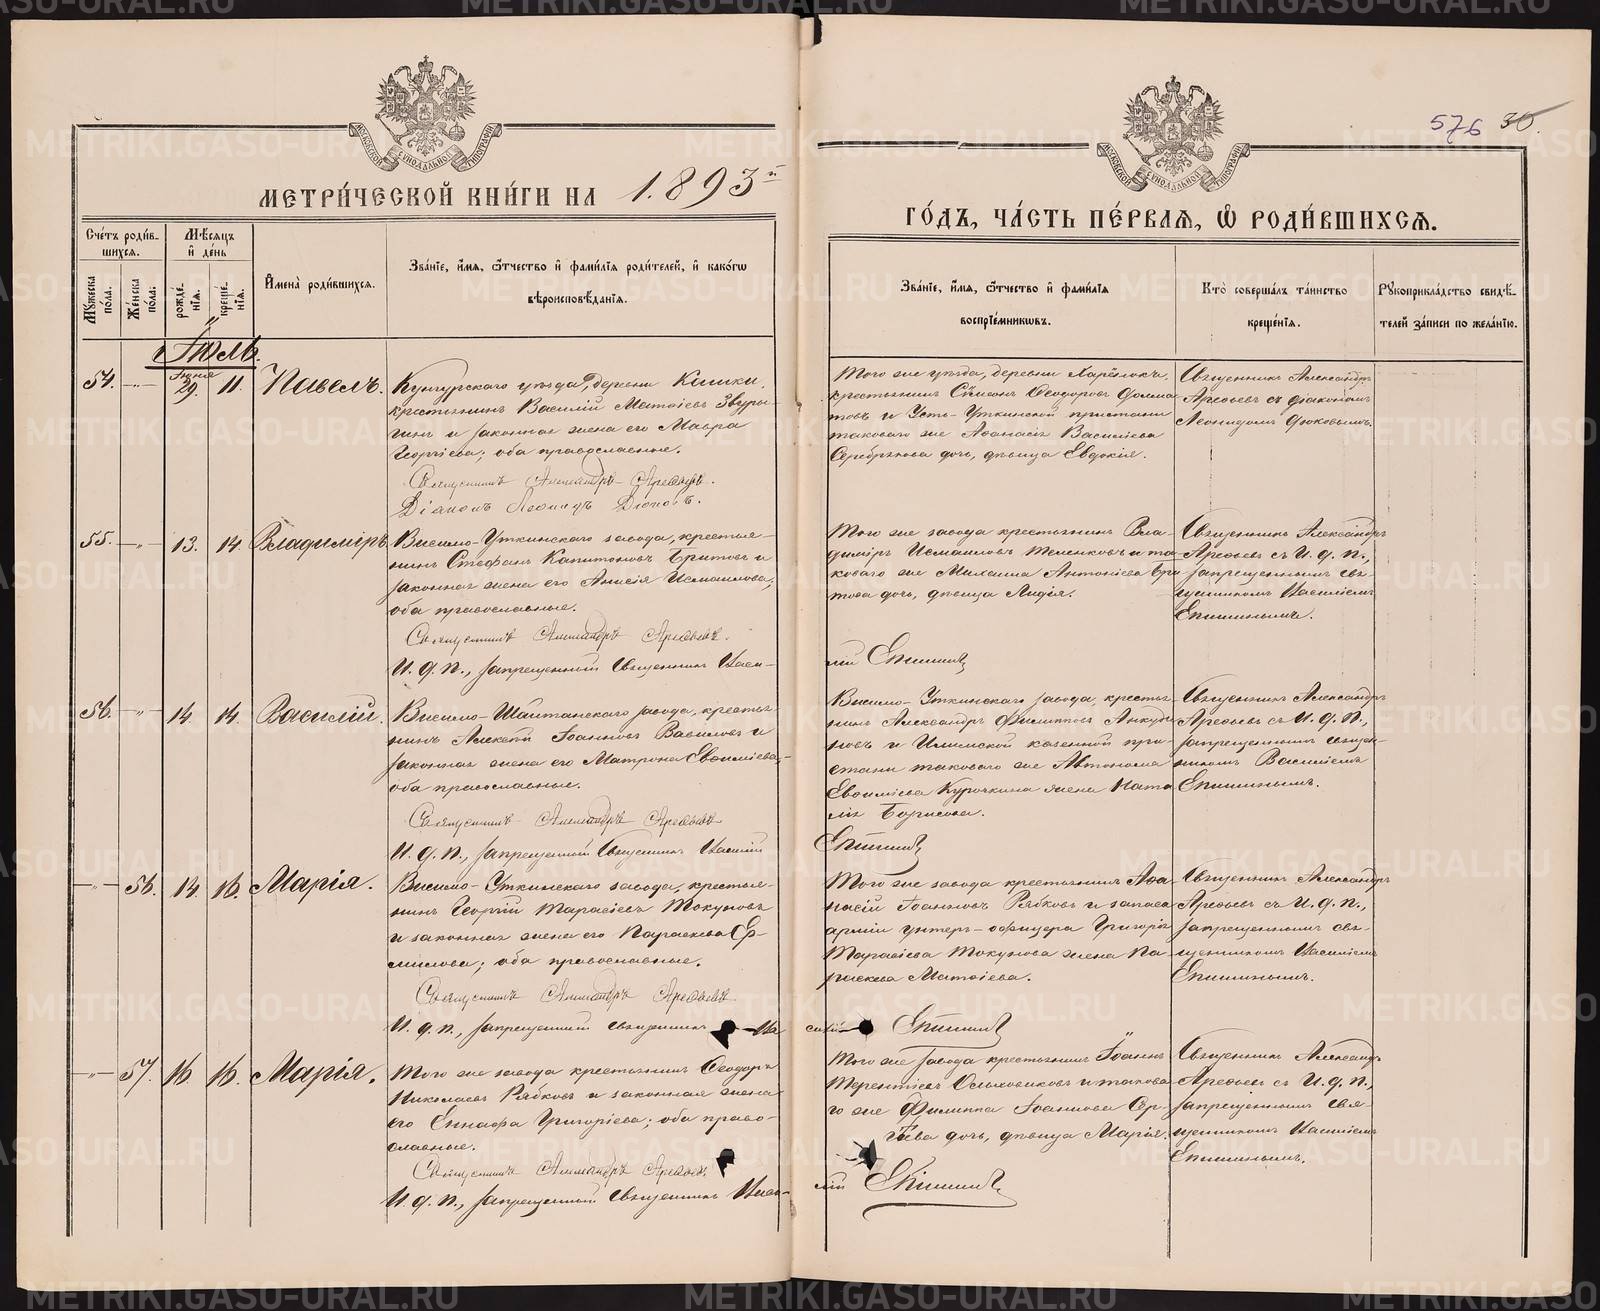 576 30.
МЕТРИ́ЧЕСКОЙ КНИ́ГИ НА 1893й
ГО́ДЪ, ЧА́СТЬ ПЕ́РВАЯ, Ѡ҆ РОДИ́ВШИХСЯ.
Сче́тъ роди́в-
шихся.
Му́жеска по́ла.
Же́нска по́ла.
Мѣ́сяцъ
и҆ де́нь
рожде́нїя.
креще́нїя.
И҆мена̀ роди́вшихся.
Зва́нїе, и҆́мя, ѻ҆́тчество и҆ фами́лїя роди́телей, и҆ како́гѡ
вѣроисповѣ́данїя.
Зва́нїе, и҆́мя, ѻ҆́тчество и҆ фами́лїя
воспрїе́мникѡвъ.
Кто̀ соверша́лъ та́инство
креще́нїя.
Рукоприкла́дство свидѣ́-
телей за́писи по жела́нїю.
Іюль.
54. —„— Іюня 29. 11. Павелъ.
Кунгурскаго уѣзда, деревни Кишки,
крестьянинъ Василій Матѳіевъ Звѣры-
гинъ и законная жена его Мавра
Георгіева; оба православные.
Священникъ Александръ Арефьевъ.
Діаконъ Леонидъ
Того же уѣзда, деревни
крестьянинъ Сѵмеонъ Ѳеодоровъ
и Усть-Уткинской пристани
таковаго же Аѳанасія Васильева
Серебрякова дочь, дѣвица Евдокія.
Священникъ Александръ
Арефьевъ съ діакономъ
Леонидомъ
55. —„— 13. 14. Владиміръ.
Висимо-Уткинскаго завода, крестья-
нинъ Стефанъ Капитоновъ Бритовъ и
законная жена его Анисія Исмаилова,
оба православные.
Священникъ Александръ Арефьевъ.
И. д. п., запрещенный Священникъ Васи-
лій Епишинъ
Того же завода крестьянинъ Вла-
диміръ Исмаиловъ Теленковъ и та-
коваго же Михаила Антоніева Бри-
това дочь, дѣвица Лидія.
Священникъ Александръ
Арефьевъ съ И. д. п.,
запрещеннымъ свя-
щенникомъ Василіемъ
Епишинымъ.
56. —„— 14. 14. Василій.
Висимо-Шайтанскаго завода, крестья-
нинъ Алексѣй Іоанновъ Вавиловъ и
законная жена его Матрона Евѳиміева,
оба православные.
Священникъ Александръ Арефьевъ
И. д. п., запрещенный Священникъ Василій
Епишинъ
Висимо-Уткинскаго завода, крестья-
нинъ Александръ Филипповъ Анкуди-
новъ и Илимской казенной при-
стани таковаго же Автонома
Евѳиміева Курочкина жена Ната-
лія Борисова.
Священникъ Александръ
Арефьевъ съ И. д. п.,
запрещеннымъ священ-
никомъ Василіемъ
Епишинымъ.
—„— 56. 14. 16. Марія.
Висимо-Уткинскаго завода, крестья-
нинъ Георгій Тарасіевъ Токуновъ
и законная жена его Параскева Ер-
милова; оба православные.
Священникъ Александръ Арефьевъ
И. д. п., запрещенный священникъ Ва-
силій Епишинъ
Того же завода крестьянинъ Аѳа-
насій Іоанновъ Рябковъ и запаса
арміи унтеръ-офицера Григорія
Тарасіева Токунова жена Па-
раскева Матѳіева.
Священникъ Александръ
Арефьевъ съ И. д. п.,
запрещеннымъ свя-
щенникомъ Василіемъ
Епишинымъ.
—„— 57. 16. 16. Марія.
Того же завода крестьянинъ Ѳеодоръ
Николаевъ Рябковъ и законная жена
его Еннаѳа Григоріева; оба право-
славные.
Священникъ Александръ Арефьевъ
И. д. п., запрещенный Священникъ Васи-
лій Епишинъ
Того же завода крестьянинъ Іоаннъ
Терентіевъ Ольховиковъ и таково-
го же Филиппа Іоаннова Сер-
гѣева дочь, дѣвица Марія.
Священникъ Александръ
Арефьевъ съ И. д. п.,
запрещеннымъ Свя-
щенникомъ Василіемъ
Епишинымъ.
METRIKI.GASO-URAL.RU